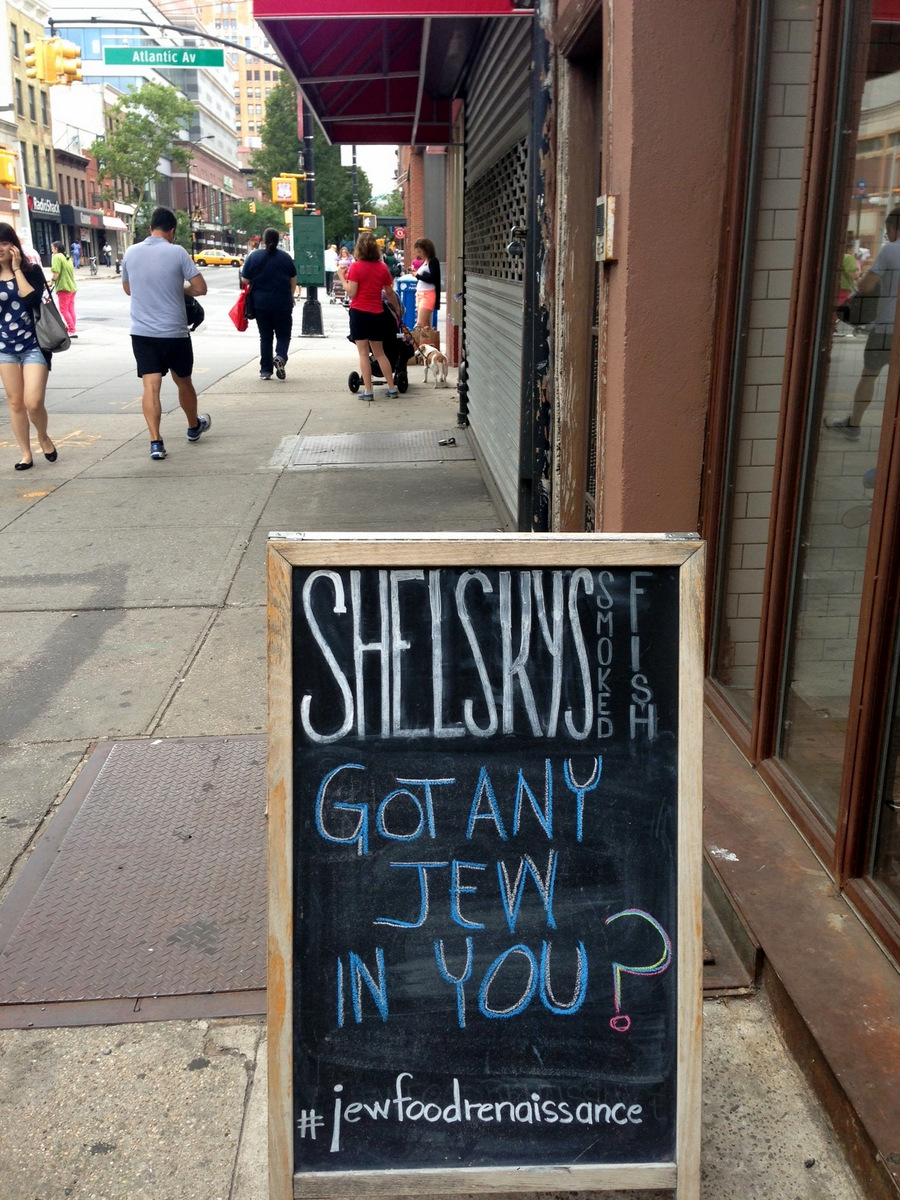 Atlantic Av
RadioShack
SHELSKYS
SMOKED
FISH
GOT ANY
JEW
IN YOU?
#jewfoodrenaissance